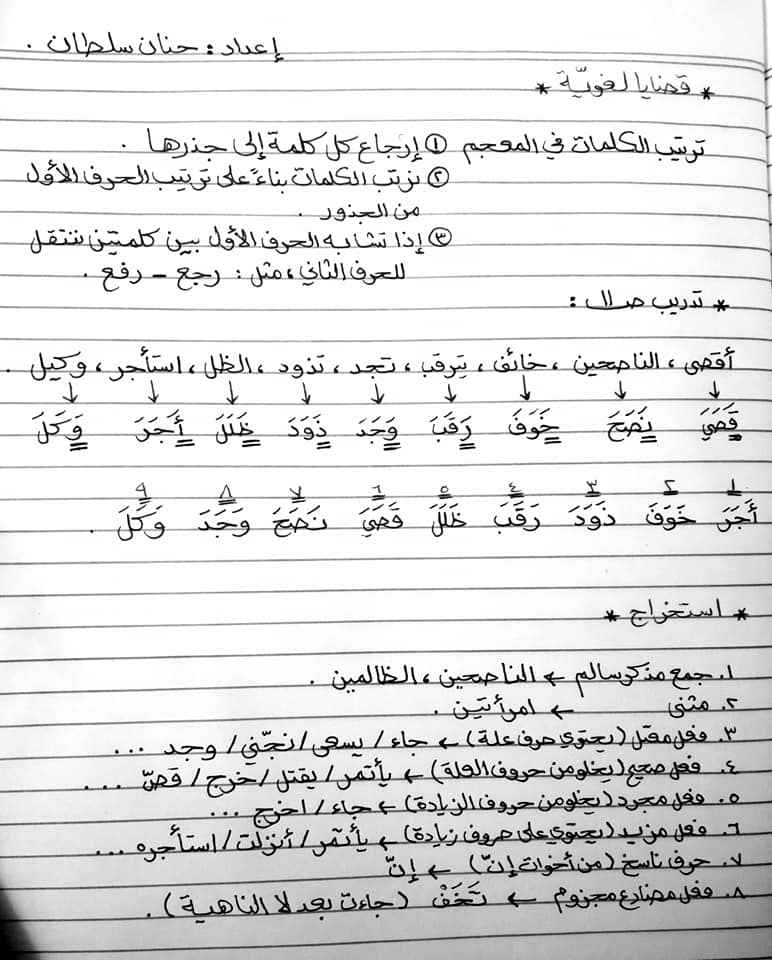 إعداد : حنان سلطان .
* قضايا لغويّة *
ترتيب الكلمات في المعجم ① إرجاع كل كلمة إلى جذرها .
② نرتب الكلمات بناءً على ترتيب الحرف الأول
من الجذور .
③ إذا تشابه الحرف الأول بين كلمتين ننتقل
للحرف الثاني ، مثل : رجع - رفع .
* تدريب صـ١١ :
أقصى ، الناصحين ، خائف ، يترقب ، تجد ، تذود ، الظل ، استأجر ، وكيل .
↓ ↓ ↓ ↓ ↓ ↓ ↓ ↓ ↓
قَصَيَ نَصَحَ خَوَفَ رَقَبَ وَجَدَ ذَوَدَ ظَلَلَ أَجَرَ وَكَلَ
١ ٢ ٣ ٤ ٥ ٦ ٧ ٨ ٩
أَجَرَ خَوَفَ ذَوَدَ رَقَبَ ظَلَلَ قَصَيَ نَصَحَ وَجَدَ وَكَلَ .
* استخراج *
١. جمع مذكر سالم ← الناصحين ، الظالمين .
٢. مثنى ← امرأتين .
٣. فعل معتل (يحتوي حرف علة) ← جاء / يسعى / نجّني / وجد ...
٤. فعل صحيح (يخلو من حروف العلة) ← يأتمر / يقتل / خرج / قصّ ...
٥. فعل مجرد (يخلو من حروف الزيادة) ← جاء / اخرج ...
٦. فعل مزيد (يحتوي على حروف زيادة) ← يأتمر / أنزلت / استأجره ...
٧. حرف ناسخ (من أخوات إنّ) ← إنّ
٨. فعل مضارع مجزوم ← تَخَفْ (جاءت بعد لا الناهية) .